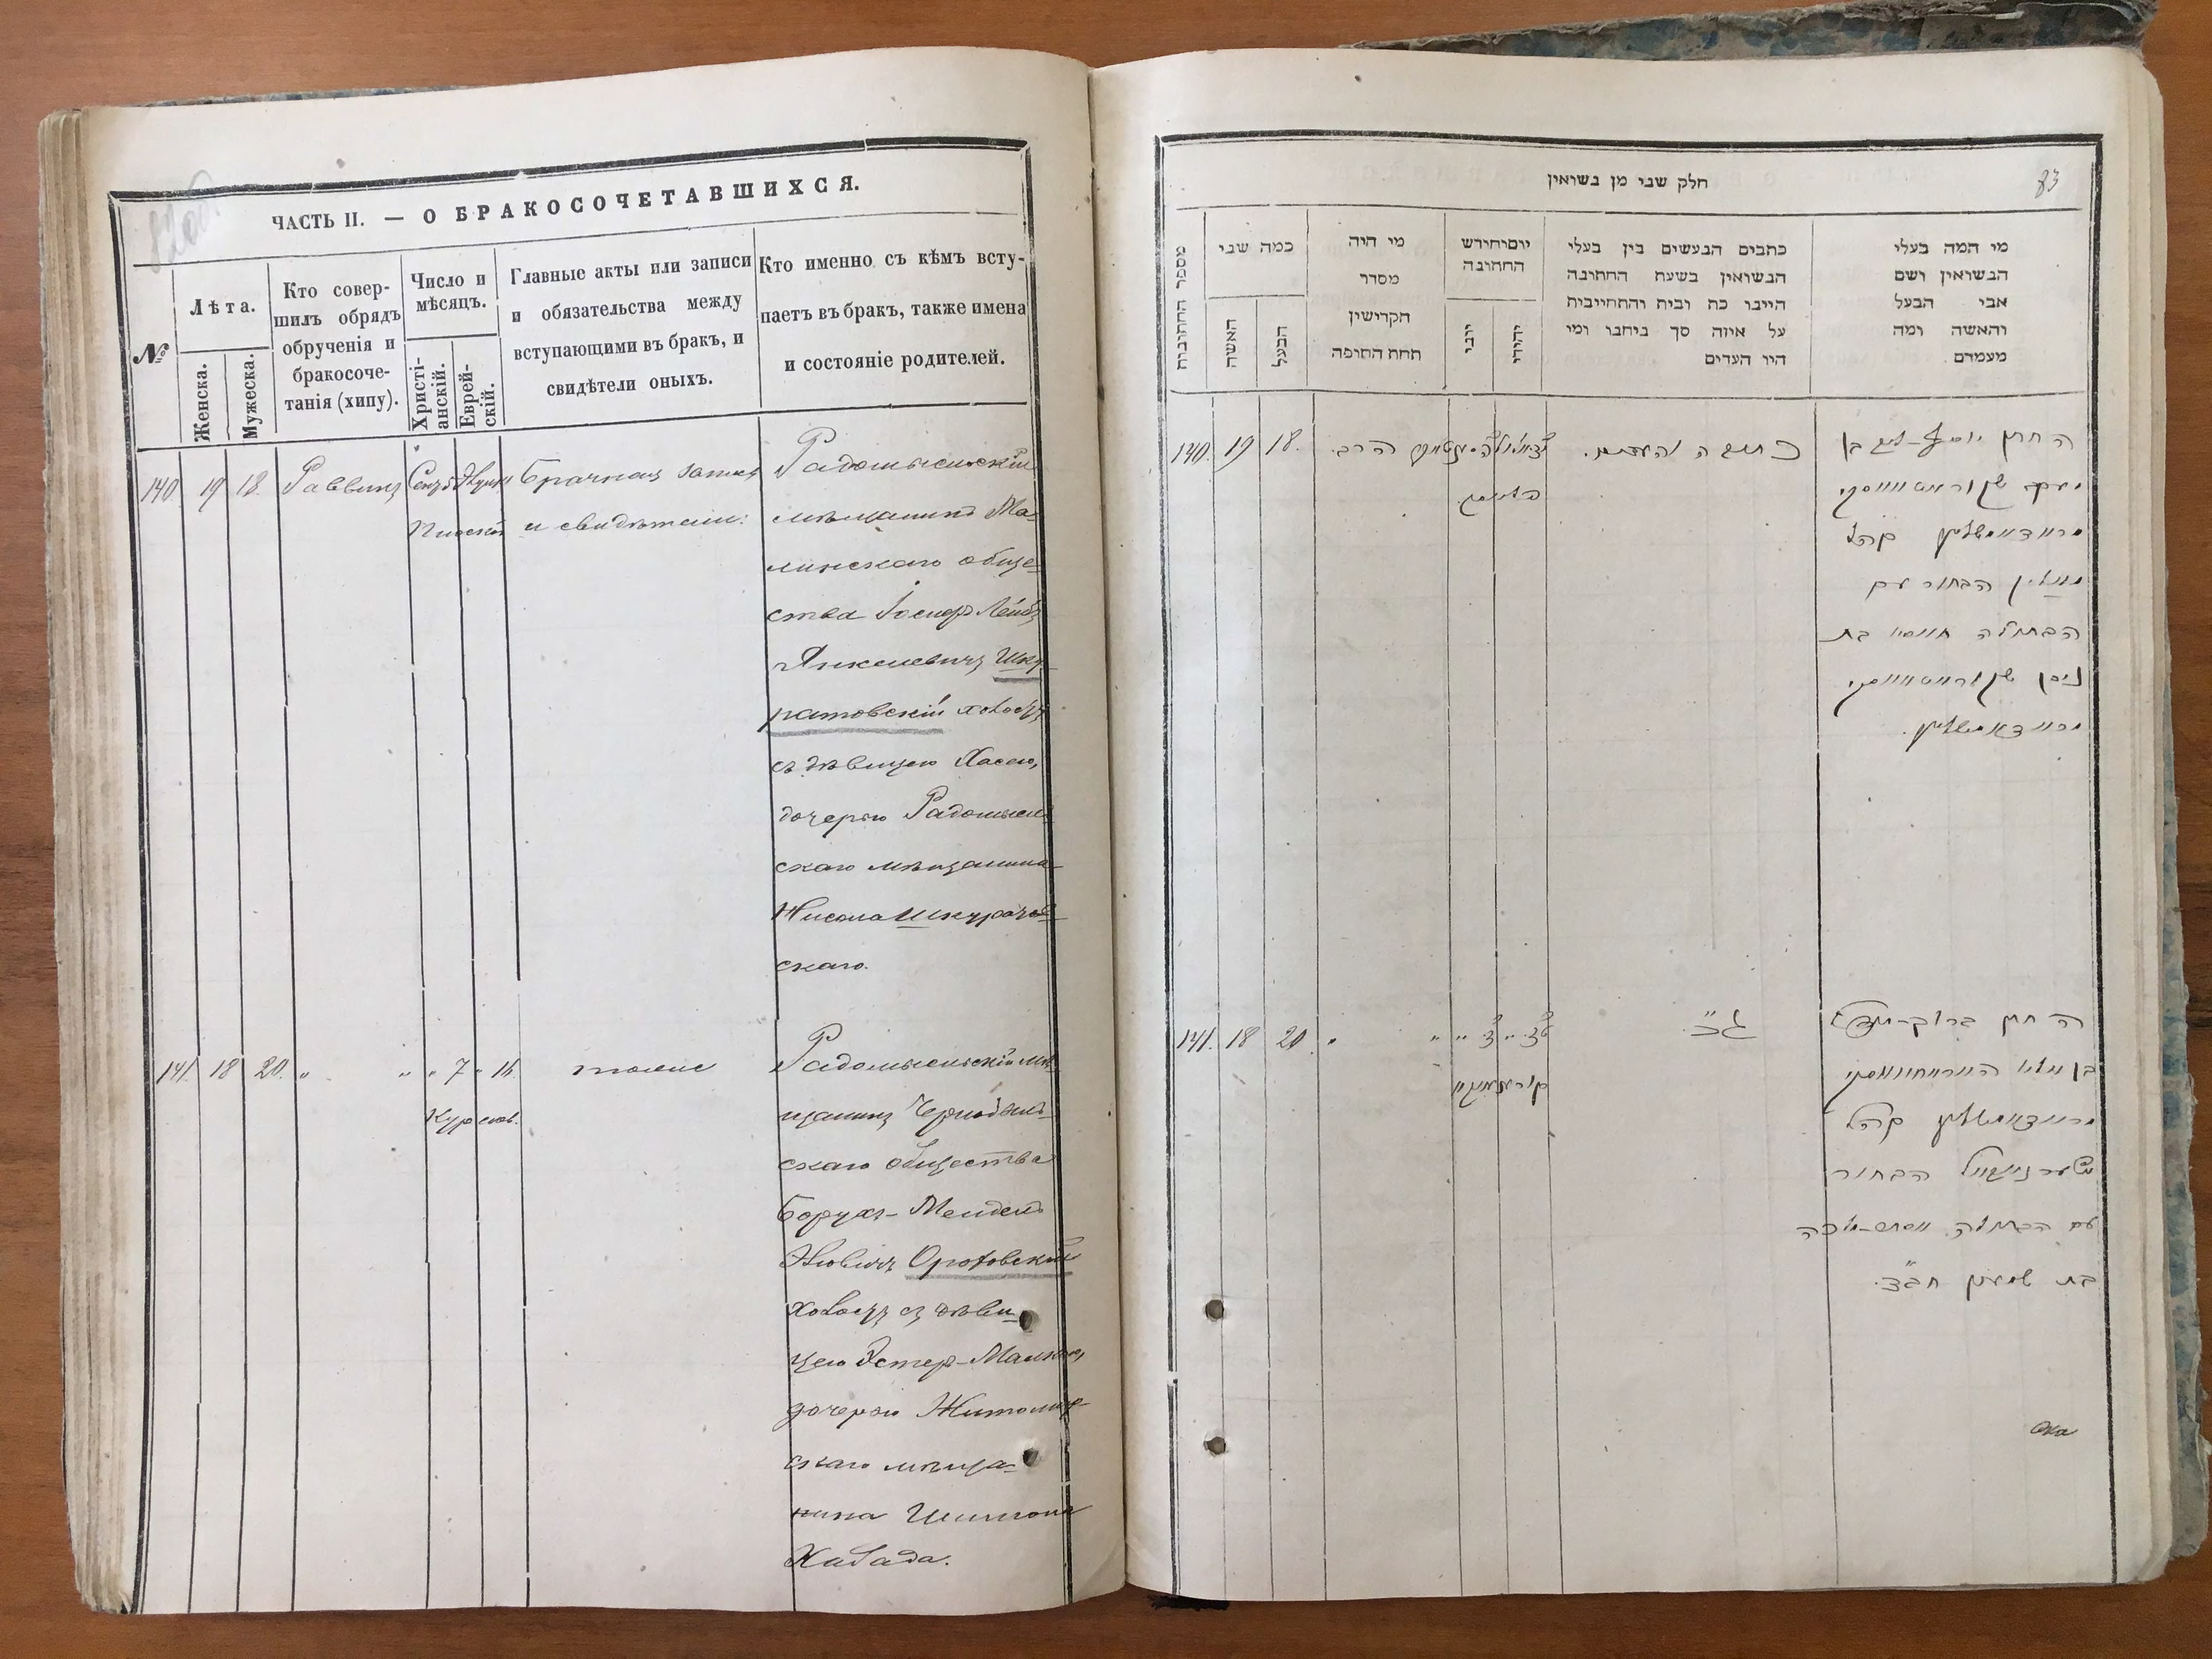 ЧАСТЬ II. — О БРАКОСОЧЕТАВШИХСЯ.
№
Лѣта.
Женска.
Мужеска.
Кто совер-
шилъ обрядъ
обрученія и
бракосоче-
танія (хипу).
Число и
мѣсяцъ.
Христі-
анскій.
Еврей-
скій.
Главные акты или записи
и обязательства между
вступающими въ бракъ, и
свидѣтели оныхъ.
Кто именно съ кѣмъ всту-
паетъ въ бракъ, также имена
и состояніе родителей.
140 19 18. Раввинъ
Брачная запись
и свидѣтели:
Радомысльскій
мѣщанинъ Ма-
линскаго обще-
ства Іосифъ Лейбъ
Янкелевичъ Шку-
ратовскій холостъ
съ дѣвицею Хасею,
дочерью Радомысль
скаго мѣщанина
Нисона Шкуратов-
скаго.
141. 18 20. " " " 7 " 16. тоже
Радомысльскій мѣ-
щанинъ Чернобыль-
скаго общества
Борухъ-Мендель
Эліовичъ Ороховскій
холостъ съ дѣви-
цею Эстеръ-Малкою,
дочерью Житомир-
скаго мѣща-
нина Шимона
Хабада.
חלק שני מן נשואין
83
מספר החתונות
כמה שני
האשה
הבעל
מי היה
מסדר
הקדישין
תחת החופה
יום וחודש
החתונה
יוני
יהודי
כתבים הנעשים בין בעלי
הנשואין בשעת החתונה
היינו כת ובית והתחייבית
על איזה סך ניתנו ומי
היו העדים
מי המה בעלי
הנשואין ושם
אבי הבעל
והאשה ומה
מעמדם
140. 19 18. הרב
כתובה והעדים.
החתן יוסף-ליב בן
יעקב שקוראטאווסקי
ראדאמישלער קהל
מאלין הבחור עם
הבתולה חאסיא בת
ניסן שקוראטאווסקי
ראדאמישלער.
141. 18 20. " " "
כנ"ל
החתן ברוך-מענדל
בן אליא
ראדאמישלער קהל
טשערנאביל הבחור
עם הבתולה אסתר-מלכה
בת שמעון חב"ד.